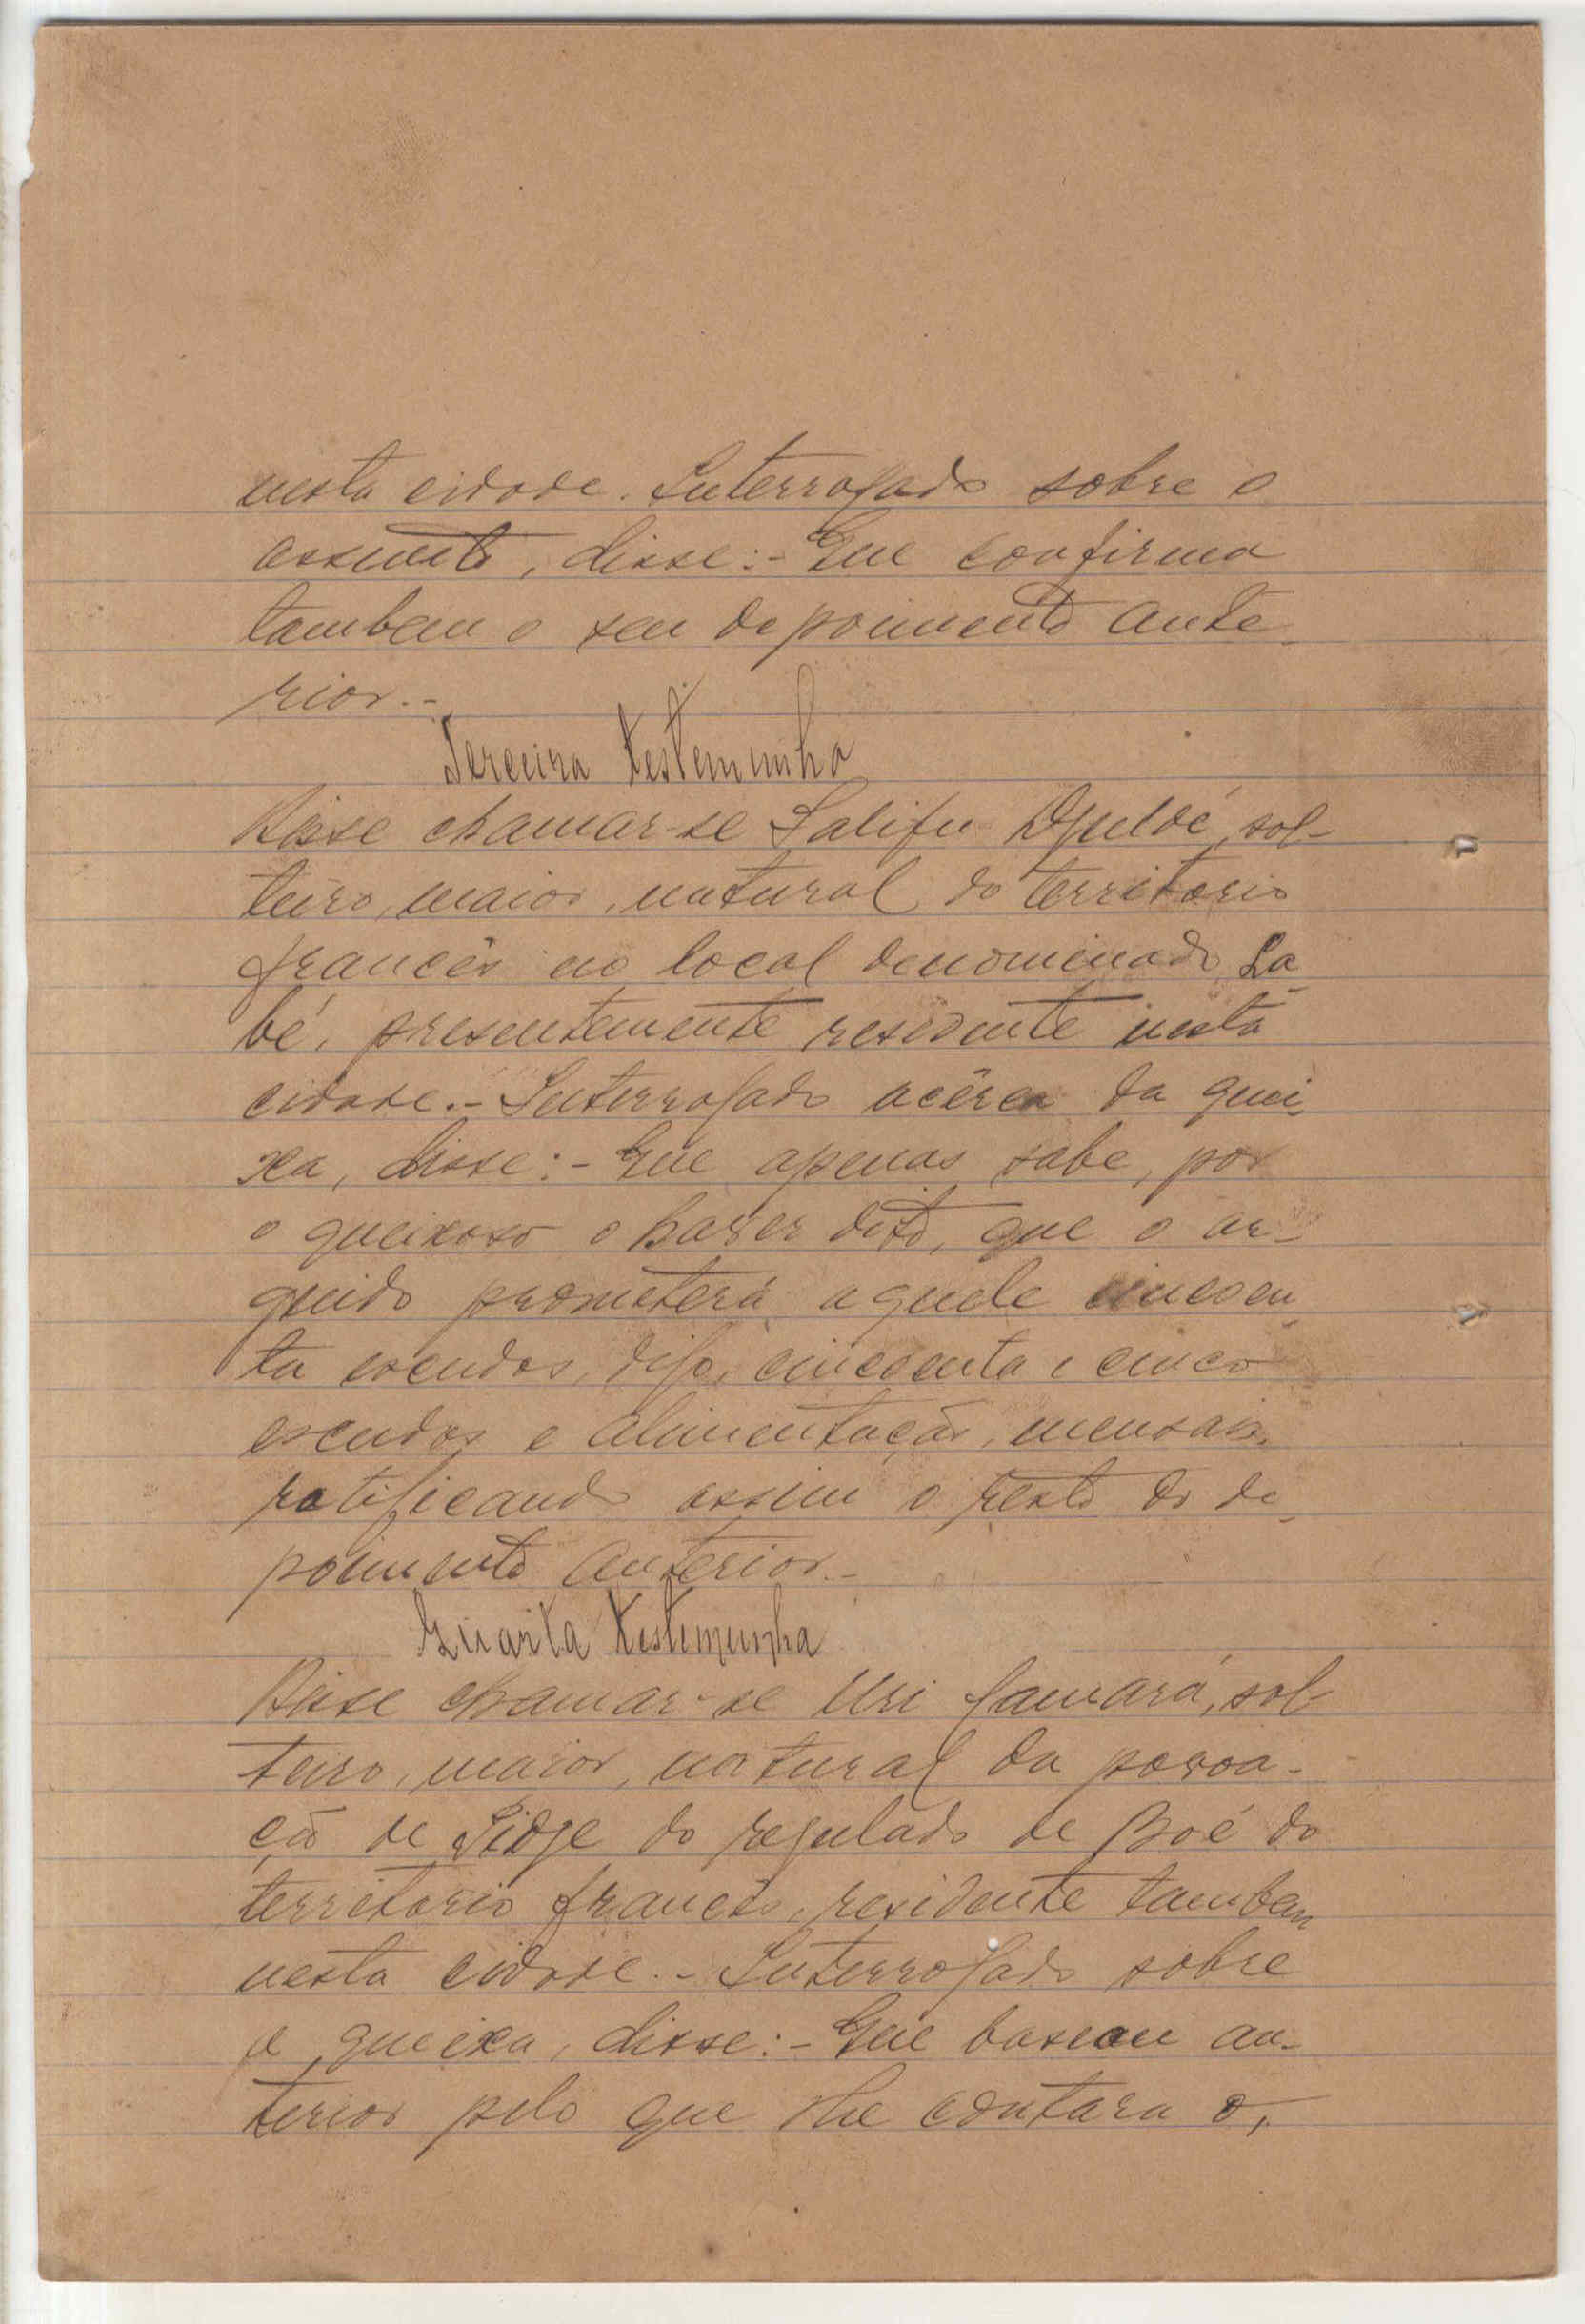 nesta cidade. Interrogado sobre o
assunto, disse:- Que confirma
tambem o seu depoimento ante-
rior.-
Terceira Testemunha
Disse chamar-se Salifu Djuldé, sol-
teiro, maior, natural do territorio
francês no local denominado La-
bé, presentemente residente nesta
cidade.- Interrogado acêrca da quei-
xa, disse:- Que apenas sabe, por
o queixoso o haver dito, que o ar-
guido prometera aquele cincoen-
ta escudos, digo, cincoenta e cinco
escudos e alimentação, mensais,
ratificando assim o resto do de-
poimento anterior.-
Quarta Testemunha
Disse chamar-se Uri Camará, sol-
teiro, maior, natural da povoa-
ção de Sidje do regulado de Boé do
territorio francês, residente tambem
nesta cidade.- Interrogado sobre
a queixa, disse:- Que an-
terior pelo que lhe contara o,